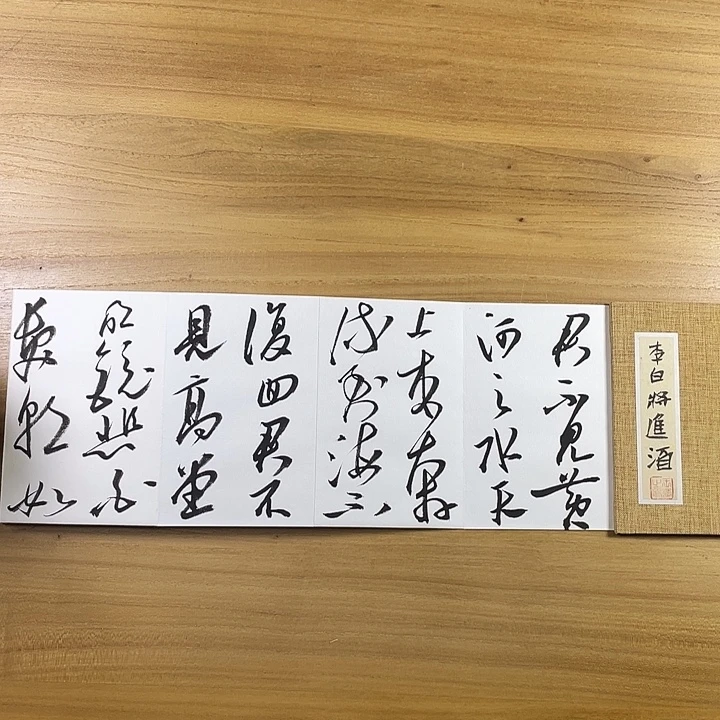 李白將進酒
君不見黄
河之水天
上来奔
流到海不
復回君不
見高堂
明鏡悲白
髮朝如